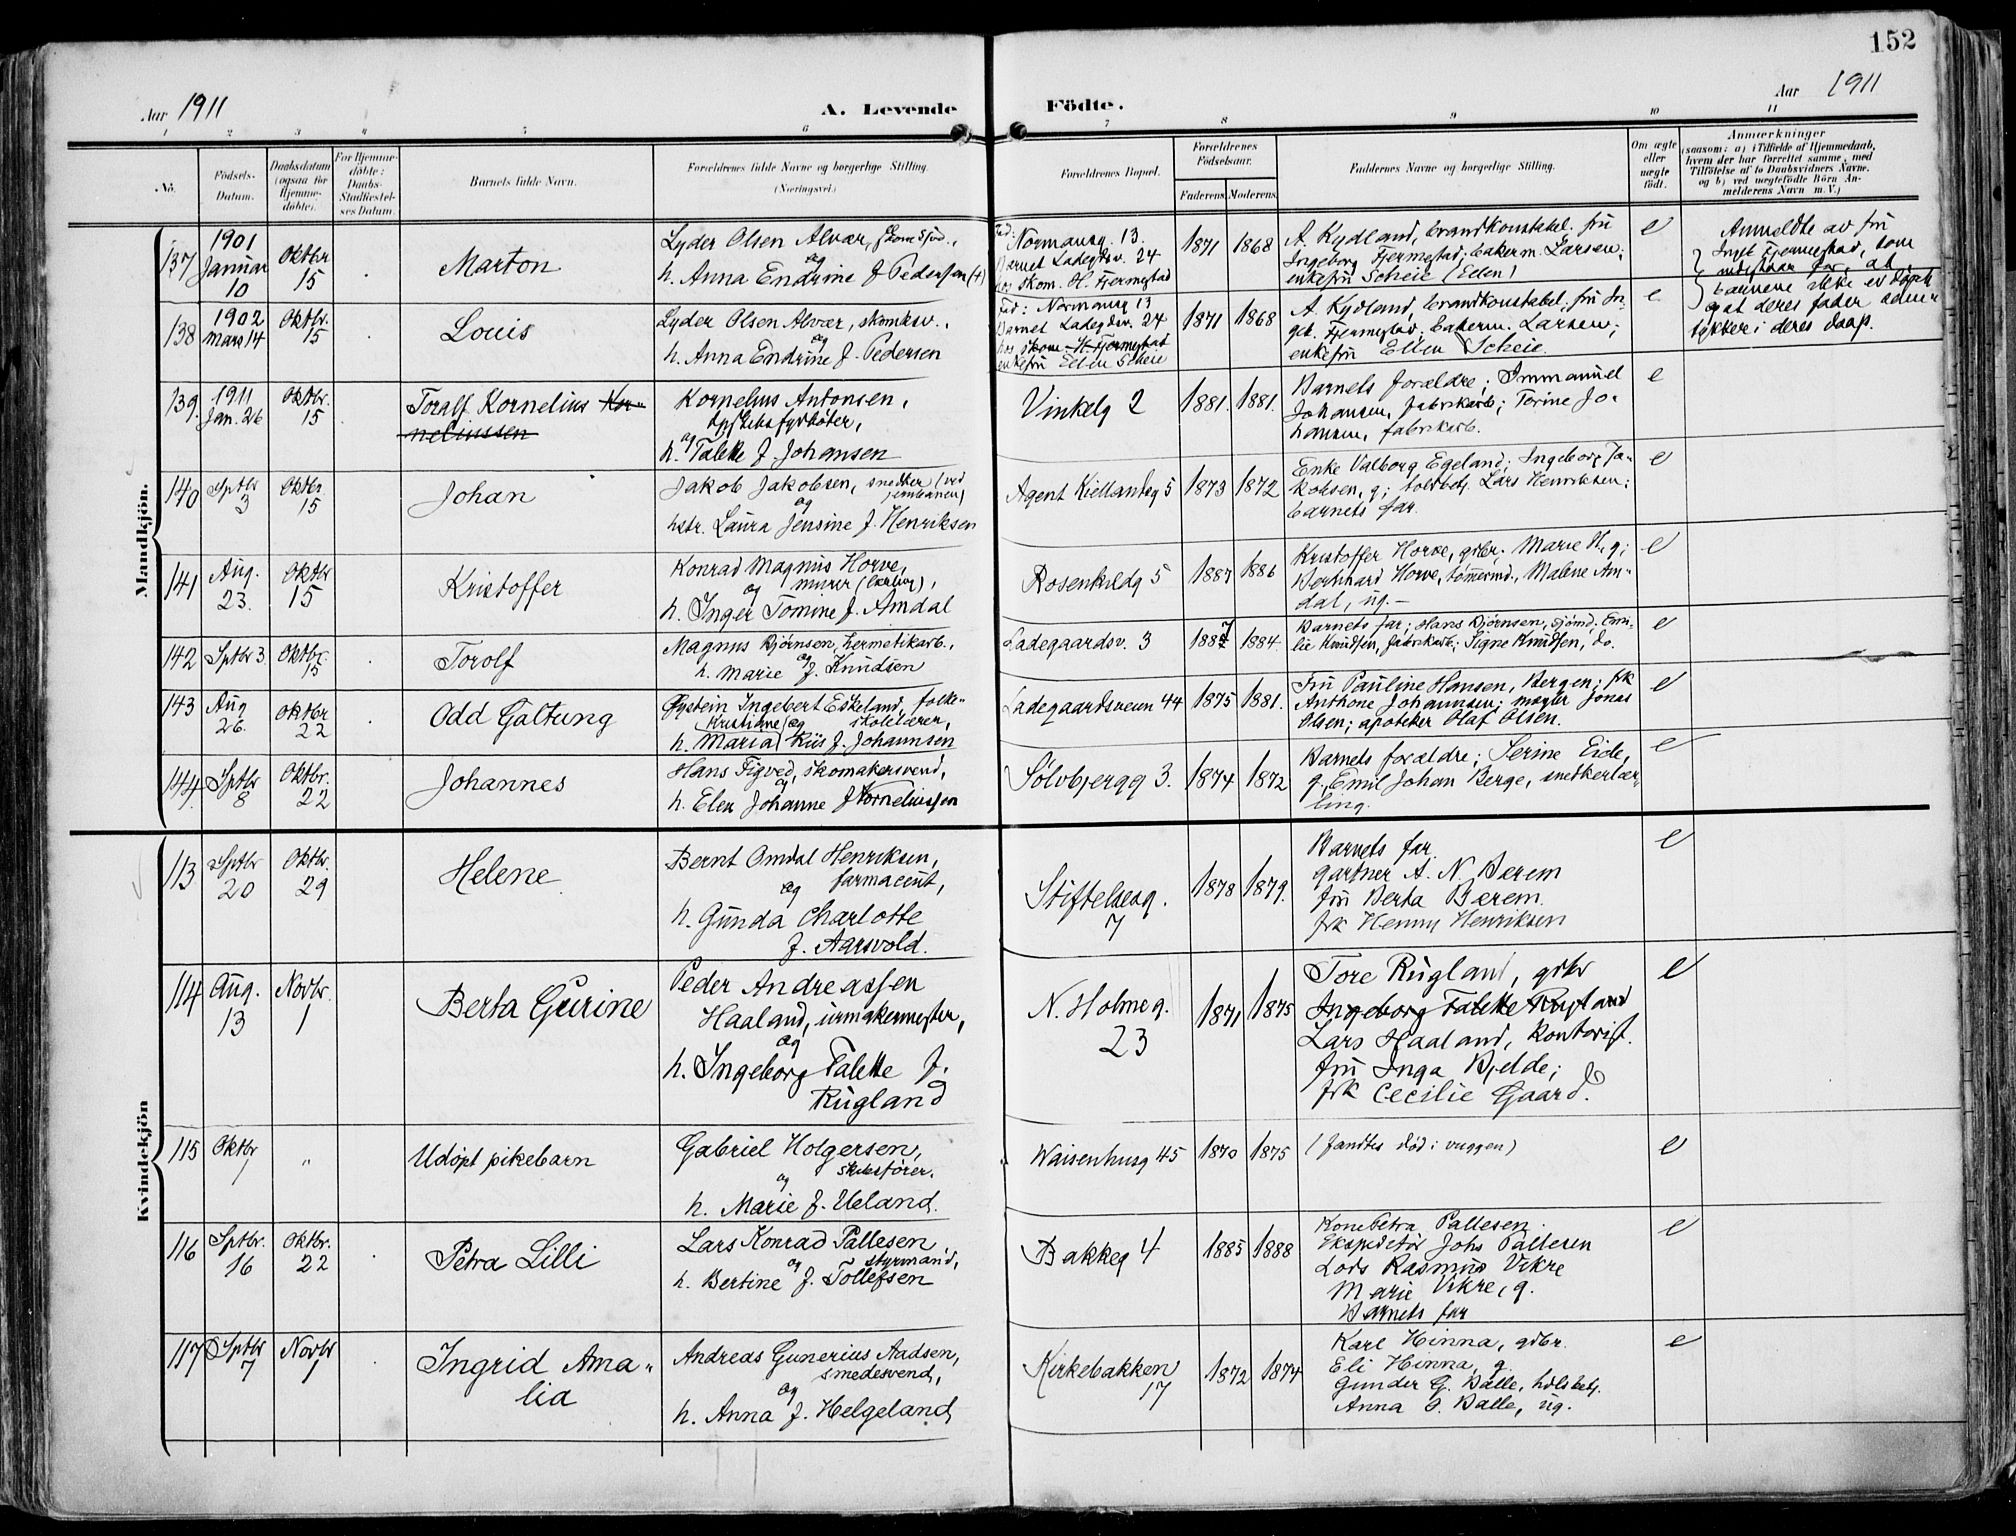 152
Aar 1911
A. Levende Födte.
Aar 1911
1 2 3 4 5 6 7 8 9 10 11
No.
Födsels-Datum.
Daabsdatum (ogsaa for Hjemme-döbte).
For Hjemme-döbte: Daabs-Stadfæstel-ses Datum.
Barnets fulde Navn.
Forældrenes fulde Navne og borgerlige Stilling.
(Næringsvei.)
Forældrenes Bopæl.
Forældrenes Födselsaar.
Faderens. Moderens.
Faddernes Navne og borgerlige Stilling.
Om ægte eller uægte födt.
Anmærkninger
(saasom: a) i Tilfælde af Hjemmedaab, hvem der har forrettet samme, med Tilföielse af to Daabsvidners Navne, og b) ved uægtefödte Börn An-melderens Navn m. V.)
Mandkjön.
137 1901 Januar 10
Oktbr 15
Marton
Lyder Olsen Alvær,
og
h. Anna Endrine f. Pedersen (+)
Normansg. 13.
Barnet Ladegdsv. 24
hos skom. H. Fjermestad
1871 1868
A. Kydland, brandkonstabel. fru
Ingeborg Fjermestad; bakerm. Larsen;
enkefru Scheie (Ellen)
e
Anmeldte av fru
Ingeb. Fjermestad, som
indestaar for, at
barnene ikke er døpt
og at deres fader sam-
tykker i deres daap.
138 1902 Mars 14
Oktbr. 15
Louis
Lyder Olsen Alvær, skomksv.,
og
h. Anna Endrine f. Pedersen
Fad: Normansg 13
Barnet Ladegdsv. 24
hos skom. H. Fjermestad
enkefru Ellen Scheie
1871 1868
A. Kydland, brandkonstabel. fru In-
geb. Fjermestad; bakerm. Larsen;
enkefru Ellen Scheie.
e
139. 1911 Jan. 26
Oktbr. 15
Toralf Kornelius Kor-
neliussen
Kornelius Antonsen,
dpskibsfyrbøter,
og
h. Talette f. Johansen
Vinkelg 2
1881. 1881.
Barnets forældre; Immanuel
Johansen, fabrikarb; Torine Jo-
hansen, fabrikarb.
e
140 Sptbr 3
Oktbr 15
Johan
Jakob Jakobsen, snedker (ved
jernbanen)
og
hstr. Laura Jensine f. Henriksen
Agent Kiellandsg 5
1873 1872
Enke Valborg Egeland; Ingeborg Ja-
kobsen, g; toldbetj. Lars Henriksen;
barnets far.
e
141 Aug. 23.
Oktbr 15
Kristoffer
Konrad Magnus Horve,
og murer
h. Inger Tomine f. Amdal
Rosenkildg 5
1887 1886
Kristoffer Horve, gdbr. Marie H., g;
Bernhard Horve, tømmermd., Malene Am-
dal, ug. –
e
142 Sptbr 3
Oktbr. 15
Torolf
Magnus Bjørnsen, hermetikarb.,
og
h. Marie f. Knudsen
Ladegaardsv. 3
1887 1884.
Barnets far; Hans Bjørnsen, sjømd. Emi-
lie Knudsen, fabrikarb; Signe Knudsen, do.
e
143 Aug 26.
Oktbr 22
Odd Galtung
Øystein Ingebert Eskeland, folke-
Kristiane og skolelærer,
h. Maria Kiis f. Johannsen
Ladegaardsveien 44
1875 1881.
Fru Pauline Hansen, Bergen; frk
Anthone Johannsen; mægler Jonas
Olsen; apoteker Olaf Olsen.
e
144 Sptbr 8
Oktbr. 22
Johannes
Hans Figved, skomakersvend,
og
h. Elen Johanne f Korneliussen
Sølvbjergg 3.
1874 1872
Barnets forældre; Serine Eide,
g., Emil Johan Berge, snedkerlær-
ling.
e
Kvindekjön
113 Sptbr 20
Oktbr. 29
Helene
Bernt Omdal Henriksen,
og farmaceut,
h. Gunda Charlotte
f. Aarsvold.
Stiftelsesg.
7
1878 1879.
Barnets far.
gartner A. N. Bærem
fru Berta Bærem.
frk Henny Henriksen
e
114 Aug. 13
Novbr. 1
Berta Gurine
Peder Andreassen
Haaland, urmakermester,
og
h. Ingeborg Talette f.
Rugland
N. Holmeg.
23
1871 1875
Tore Rugland, gdbr
Ingeborg Talette Rugland
Lars Haaland, kontorist.
fru Inga Bjelde;
frk Cecilie Gaard.
e
115 Oktbr 1
"
Udøpt pikebarn
Gabriel Holgersen,
og skibsfører.
h. Marie f. Ueland.
Waisenhusg 45
1870 1875
(fandtes død i vuggen)
e
116 Sptbr. 16
Oktbr. 22
Petra Lilli
Lars Konrad Pallesen
og styrmand,
h. Bertine f. Tollefsen
Bakkeg 4
1885 1888
Kone Petra Pallesen.
Ekspeditør Johs Pallesen
Lods Rasmus Vikre
Marie Vikre, g.
Barnets far
e
117 Sptbr 7
Novbr 1
Ingrid Ama-
lia
Andreas Gunerius Aadsen,
smedesvend,
og
h. Anna f. Helgeland
Kirkebakken
17
1872 1874
Karl Hinna, gdbr.
Eli Hinna, g.
Gunder G. Dalle,
Anna S. Dalle, ug.
e